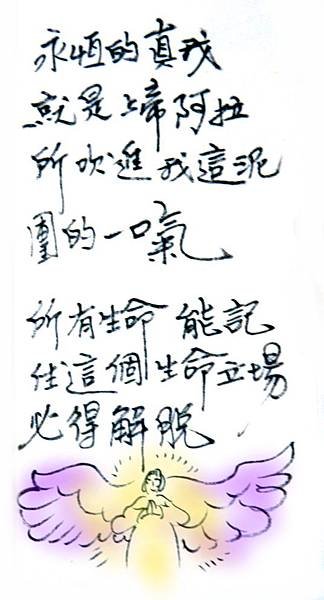 永恆的真我
就是上帝阿拉
所吹進我這泥
團的一口氣
所有生命能記
住這個生命立場
必得解脫